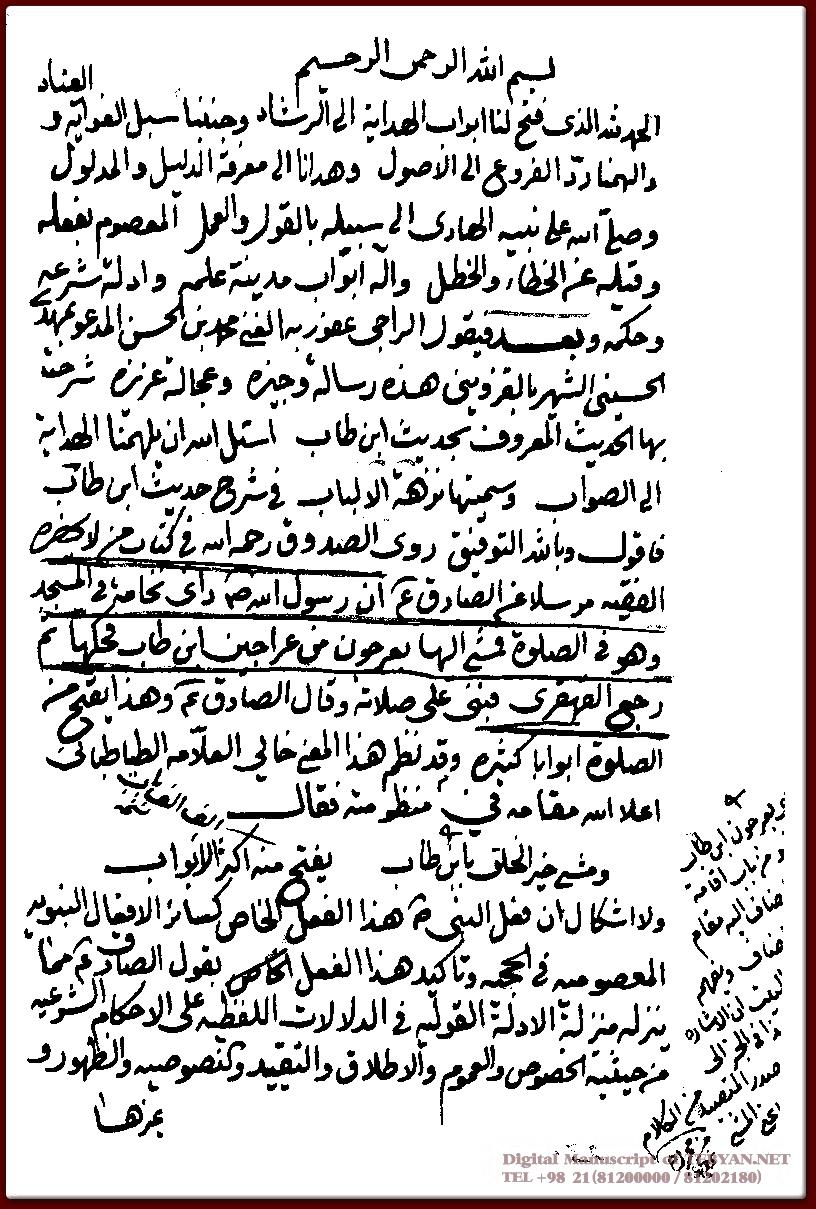 بسم الله الرحمن الرحيم
الحمد لله الذى فتح لنا ابواب الهداية الى الرشاد وجنبنا سبل الغواية و
العناد
والهمنا ردّ الفروع الى الاصول وهدانا الى معرفة الدليل والمدلول
وصلى الله على نبيه الهادى الى سبيله بالقول والعمل المعصوم بفعله
وقيله عن الخطاء والخطل واله ابواب مدينة علمه وادلة شرعه
وحكمه وبعد فيقول الراجى عفو ربه الغنى محمد بن الحسن المدعو بمهدى
الحسينى الشهير بالقزوينى هذه رسالة وجيزه وعجالة عزيزه شرحت
بها الحديث المعروف بحديث ابن طاب اسئل الله ان يلهمنا الهداية
الى الصواب وسميتها نزهة الالباب فى شرح حديث ابن طاب
فاقول وبالله التوفيق روى الصدوق رحمه الله فى كتاب من لا يحضره
الفقيه مرسلا عن الصادق ع ان رسول الله ص رأى نخامة فى المسجد
وهو فى الصلوة فمشى اليها بعرجون من عراجين ابن طاب فحكها ثم
رجع القهقرى فبنى على صلاته وقال الصادق ع وهذا يفتح من
الصلوة ابوابا كثيره وقد نظم هذا المعنى خالى العلامه الطباطبائى
اعلا الله مقامه فى منظومته فقال
ومشى خير الخلق بابن طاب يفتح منه اكثر الابواب
ولا اشكال ان فعل النبى ص هذا الفعل الخاص كسائر الافعال النبويه
المعصوميه فى الحجيه وتاكيد هذا الفعل الخاص بقول الصادق ع مما
ينزله منزلة الادلة القوليه فى الدلالات اللفظيه على الاحكام الشرعيه
من حيثية الخصوص والعموم والاطلاق والتقييد وكنصوصيه والظهور و
غيرها
بعرجون ابن طاب
من باب اقامة
المضاف اليه مقام
المضاف
صدر القضية من الكلام
Digital Manuscript of TEBYAN.NET
TEL +98 21(81200000 / 81202180)